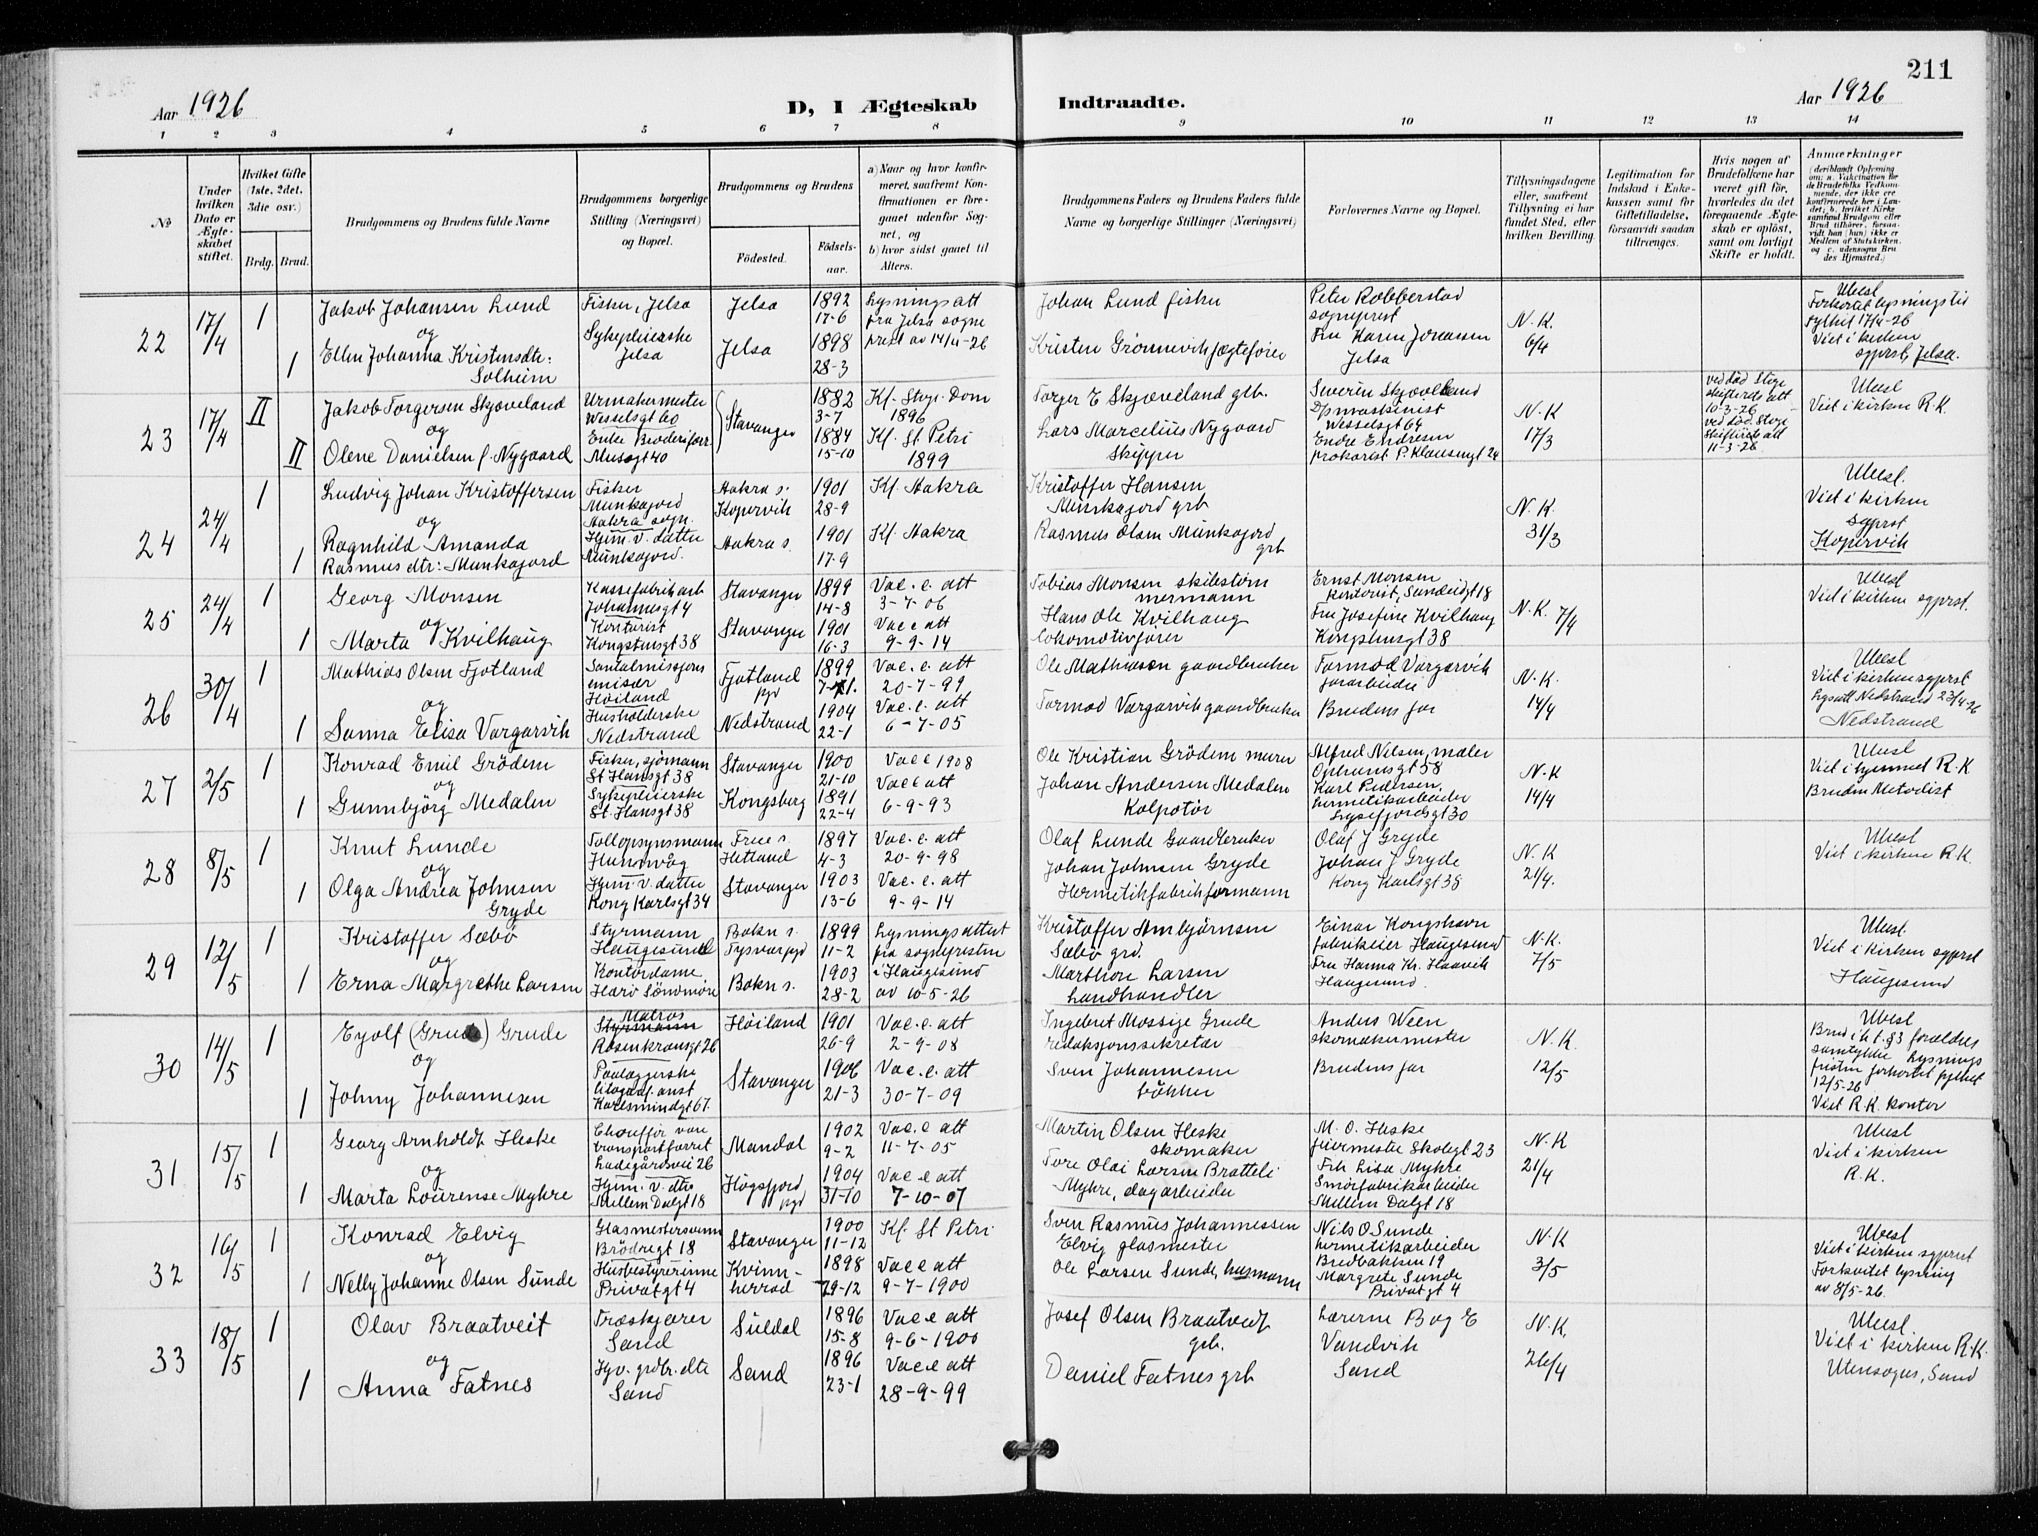 211
Aar 1926
D, I Ægteskab
Indtraadte.
Aar 1926
1 2 3 4 5 6 7 8 9 10 11 12 13 14
№
Under hvilken Dato er Ægteskabet stiftet.
Hvilket Gifte (1ste, 2det, 3die osv.)
Brdg. Brud.
Brudgommens og Brudens fulde Navne
Brudgommens borgerlige Stilling (Næringsvei) og Bopæl.
Brudgommens og Brudens
Födested.
Födselsaar.
a) Naar og hvor konfirmeret, saafremt Konfirmationen er foregaaet udenfor Sognet, og
b) hvor sidst gaaet til Alters.
Brudgommens Faders og Brudens Faders fulde Navne og borgerlige Stillinger (Næringsvei)
Forlovernes Navne og Bopæl.
Tillysningsdagene eller, saafremt Tillysning ei har fundet Sted, efter hvilken Bevilling.
Legitimation for Indskud i Enkekassen samt for Giftetilladelse, forsaavidt saadan tiltrænges.
Hvis nogen af Brudefolkene har været gift för, hvorledes da det foregaaende Ægteskab er oplöst, samt om lovligt Skifte er holdt.
Anmærkninger
(deriblandt Oplysning om: a. Vakcination for de Brudefolks Vedkommende, der ikke ere konfirmerede her i Landet; b. hvilket Kirkesamfund Brudgom eller Brud tilhörer, forsaavidt han (hun) ikke er Medlem af Statskirken, og c. udensogns Brudes Hjemsted.)
22
17/4
1
Jakob Johansen Lund
og
1
Ellen Johanna Kristensdtr: Solheim
Fisker, Jelsa
Sykepleierske
Jelsa
Jelsa
Jelsa
1892
17-6
1898
28-3
Lysningsatt
fra Jelsa sogne
prest av 14/4-26
Johan Lund fisker
Kristen Grønnevik jægtefører
Peter Robberstad
sogneprest
Fru Karen Jonassen
Jelsa
N.K.
6/4
Ubesl
Forkortet lysningstid
fylket 17/4-26
Viet i kirken
sgprst, Jelsa.
23
17/4
II
Jakob Torgersen Skjæveland
og
II
Olene Danielsen f. Nygaard
Urmakermester
Wesselsgt 60
Enke Broderiforr.
Musegt 40
Stavanger
1882
3-7
1884
15-10
Kf. Stvgr. Dom
1896
Kf. St Petri
1899
Torger E Skjæveland gb.
Lars Marcelius Nygaard
Skipper
Severin Skjæveland
D/s maskinist
Wesselsgt 64
Endre Endresen
prokurist P. Klausensgt 24
N.K
17/3
ved død Stvg
skifterets att
10-3-26
ved død. Stvg
Skifterets att
11-3-26.
Ubesl
Viet i kirken R.K.
24
24/4
1
Ludvig Johan Kristoffersen
og
1
Ragnhild Amanda
Rasmusdtr: Munkajord
Fisker
Munkajord
Aakra sogn.
Hjem. v. datter
Munkajord.
Aakra s.
Kopervik
Aakra s.
1901
28-9
1901
17-9
Kf. Aakra
Kf. Aakra
Kristoffer Hansen
Munkajord grb
Rasmus Olsen Munkajord
grb
N.K.
31/3
Ubesl.
Viet i kirken
sgprst
Kopervik
25
24/4
1
Georg Monsen
og
1
Marta Kvilhaug
Kassefabrikarb
Johannesgt 4
Kontorist
Kongshusgt 38
Stavanger
Stavanger
1899
14-8
1901
16-3
Vac. e. att
3-7-06
Vac e att
9-9-14
Tobias Monsen skilestøm
mermann
Hans Ole Kvilhaug
lokomotivfører
Ernst Monsen
kontorist, Sundeidgt 18
Fru Josefine Kvilhaug
Kongshusgt 38
N.K. 7/4
Ubesl
Viet i kirken sgprst.
26
30/4
1
Mathias Olsen Fjotland
og
1
Sanna Elisa Vargarvik
Santalmissjons
emisær
Høiland
Husholderske
Nedstrand
Fjotland
pgd
Nedstrand
1899
7-1.
1904
22-1
Vac. e. att
20-7-99
Vac. e. att
6-7-05
Ole Mathiasen gaardbruker
Tormod Vargarvik gaardbruker
Tormod Vargarvik
jordarbeider
Brudens far
N.K.
14/4
Ubesl
Viet i kirken sgprst
Lysatt Nedstrand 23/4-26
Nedstrand
27
2/5
1
Konrad Emil Grödem
og
1
Gunnbjörg Medalen
Fisker, sjømann
St Hansgt 38
Sykepleierske
St. Hansgt 38
Stavanger
Kongsberg
1900
21-10
1891
22-4
Vac e 1908
Vac e att
6-9-93
Ole Kristian Grödem murer
Johan Andersen Medalen
Kolportør
Alfred Nilsen, maler
Opheimsgt 58
Karl Pedersen,
hermetikarbeider
Lysefjordsgt 30
N.K
14/4
Ubesl
Viet i hjemmet R.K
Bruden Metodist
28
8/5
1
Knut Lunde
og
1
Olga Andrea Johnsen
Gryde
Tollopsynsmann
Hundvåg
Hjem. v. datter
Kong Karlsgt 34
Frue s.
Hetland
Stavanger
1897
4-3
1903
13-6
Vac. e. att
20-9-98
Vac. e. att
9-9-14
Olaf Lunde Gaardbruker
Johan Johnsen Gryde
Hermetikfabrikformann
Olaf J Gryde
Johan J Gryde
Kong Karlsgt 38
N.K
21/4.
Ubesl
Viet i kirken R.K.
29
12/5
1
Kristoffer Sæbø
og
1
Erna Margrethe Larsen
Styrmann
Haugesund
Kontordame
Harø Söndmöre
Bokn s.
Tysværpgd
Bokn s.
1899
11-2
1903
28-2
Lysningsattest
fra sognepresten
i Haugesund
av 10-5-26
Kristoffer Ambjörnsen
Sæbö grd.
Marthon Larsen
landhandler
Einar Kongshavn
fabrikeier Haugesund
Fru Hanna Kr. Haavik
Haugesund.
N.K.
7/5
Ubesl.
Viet i kirken sgprst
Haugesund
30
14/5
1
Eyolf (Grude) Grude
og
1
Johny Johannesen
Matros
Styrmann
Rosenkransgt 26
Paalæggerske
litograf. anst
Karlsmindgt 67.
Høiland
Stavanger
1901
26-9
1906
21-3
Vac. e. att
2-9-08
Vac. e. att
30-7-09
Ingebret Mossige Grude
redaksjonssekretær
Sven Johannesen
bökker
Anders Ween
skomakermester
Brudens far
N.K.
12/5
Ubesl
Brud i h.t. §3 forældres
samtykke Lysnings
fristen forkortet fylket
12/5-26
Viet R.K. kontor
31
15/5
1
Georg Arnholdt Heske
og
1
Marta Lourense Myhre
Chauffør vare
transportforret
Ladegårdsvei 26
Hjem. v. dtr
Mellem Dalgt 18
Mandal
Høgsfjord
pgd
1902
9-2
1904
31-10
Vac. e att
11-7-05
Vac e att
7-10-07
Martin Olsen Heske
skomaker
Tore Olai Larsen Bratteli
Myhre, dagarbeider
M. O. Heske
feiermester Skolegt 23
Frk Lisa Myhre
Smörfabrikarbeider
Mellem Dalgt 18
N.K
21/4
Ubesl
Viet i kirken
R.K.
32
16/5
1
Konrad Elvig
og
1
Nelly Johanne Olsen Sunde
Glasmestersvenn
Brödregt 18
Husbestyrerinne
Privatgt 4
Stavanger
Kvinn-
herrad
1900
11-12
1898
29-12
Kf. St Petri
Vac e att
9-7-1900
Sven Rasmus Johannessen
Elvig glasmester
Ole Larsen Sunde, husmann
Nils O Sunde
hermetikarbeider
Bredbakken 19
Margrete Sunde
Privatgt 4
N.K
3/5
Ubesl
Viet i kirken sgprst
Forkortet lysning
av 8/5-26.
33
18/5
1
Olav Braatveit
og
1
Anna Fatnes
Træskjærer
Sand
Hjv. grdbr. dtr
Sand
Suldal
Sand
1896
15-8
1896
23-1
Vac e att
9-6-1900
Vac. e att
28-9-99
Josef Olsen Braatvedt
grb.
Daniel Fatnes grb
Lærerne B og E
Vandvik
Sand
N.K.
26/4
Ubesl
Viet i kirken R.K.
Utensogns, Sand